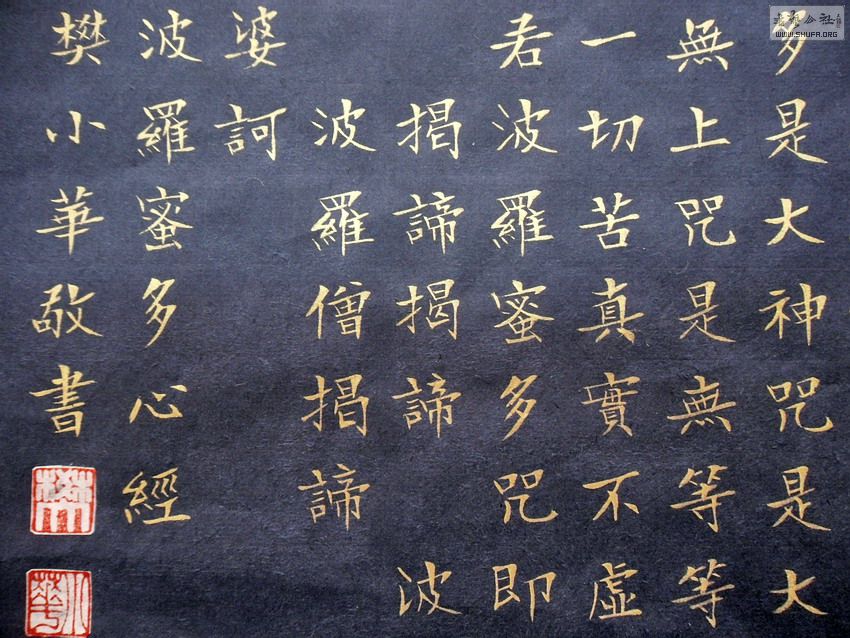 多是大神咒是大
無上咒是無等等
一切苦真實不虛
若波羅蜜多咒即
揭諦揭諦 波
波羅僧揭諦
婆訶
波羅蜜多心經
樊小華敬書
樊
小華
書藝公社
WWW.SHUFA.ORG